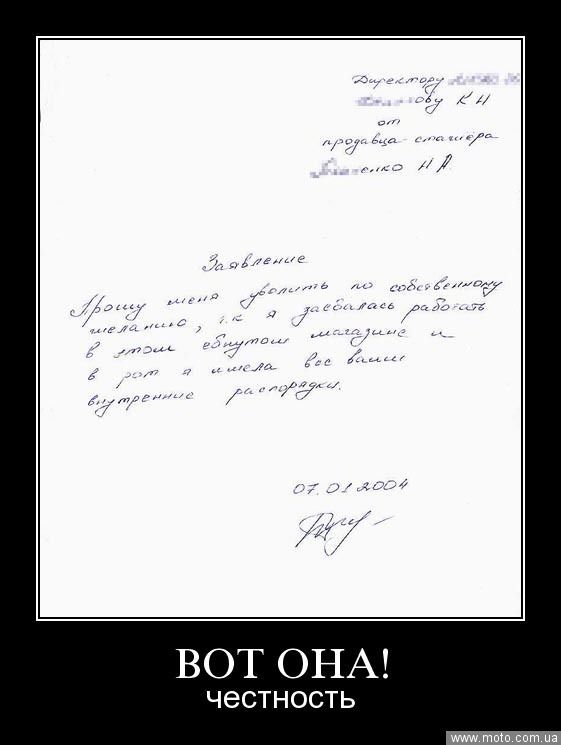 Директору
ову К Н
от
продавца-стажёра
енко Н А.
Заявление
Прошу меня уволить по собственному
желанию, т.к я заебалась работать
в этом ебнутом магазине и
в рот я имела все ваши
внутренние распорядки.
07.01 2004
ВОТ ОНА!
честность
www.moto.com.ua